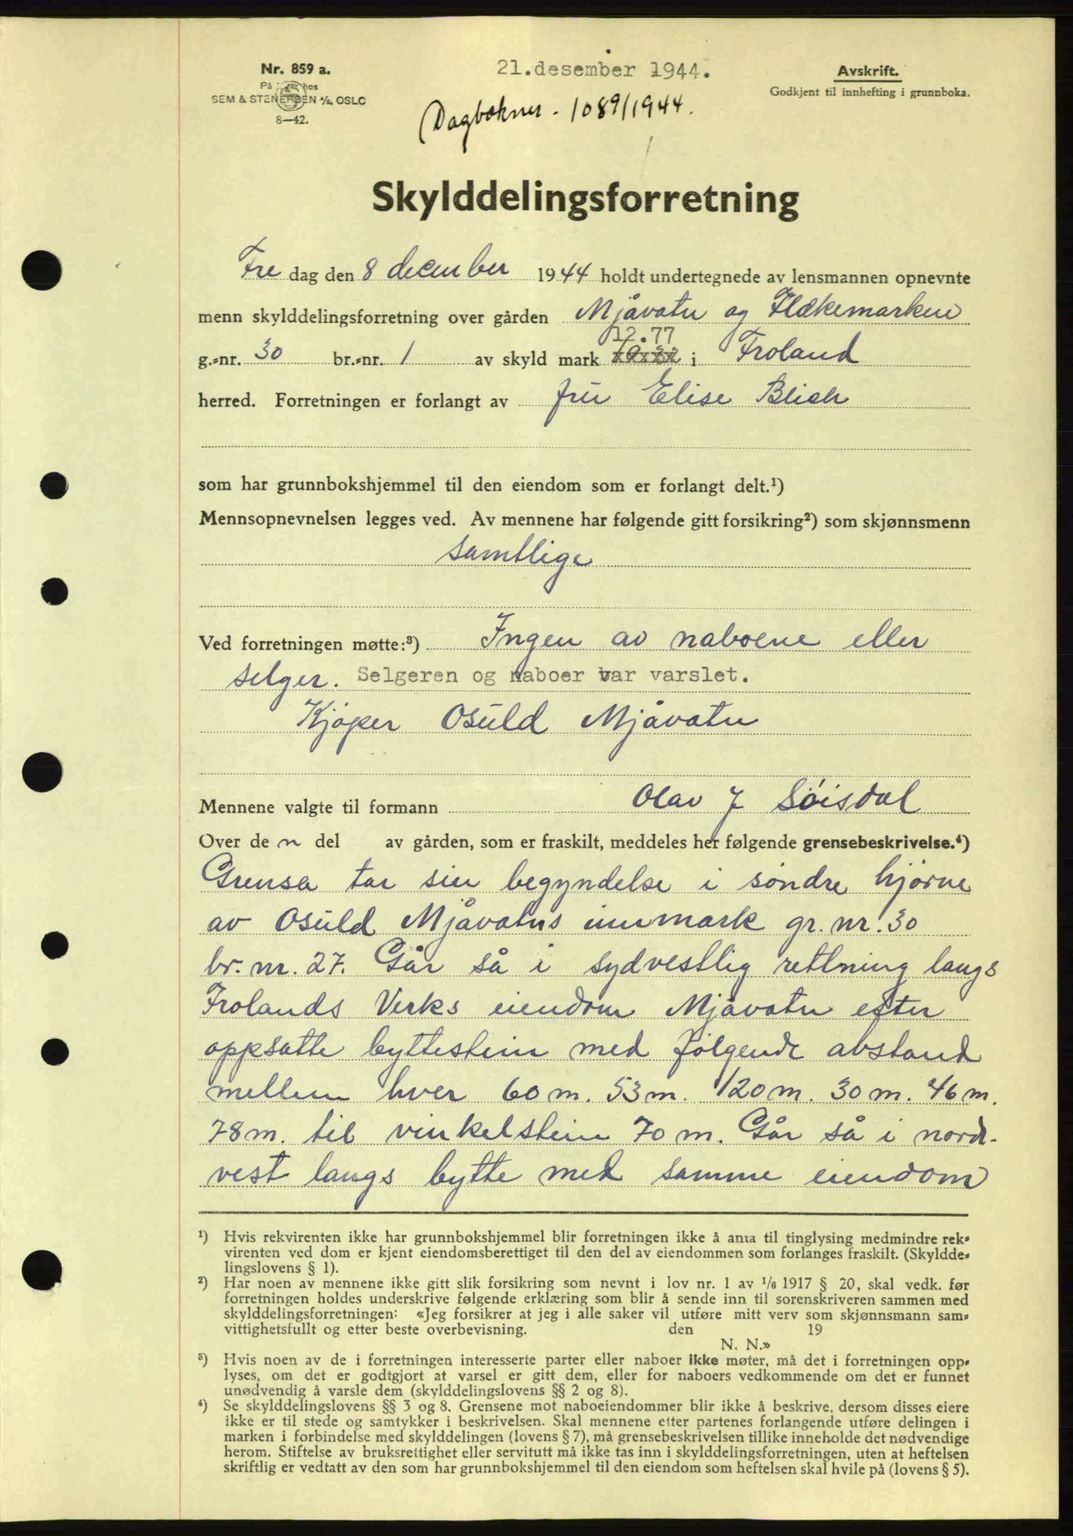 Nr. 859 a.
På hos
SEM & STENERSEN A/S, OSLO
8—42.
21.desember 1944.
Dagboknr. 1089/1944.
Avskrift.
Godkjent til innhefting i grunnboka.
Skylddelingsforretning
Fre dag den 8 december 1944 holdt undertegnede av lensmannen opnevnte
menn skylddelingsforretning over gården Mjåvatn og Flækemarken
12.77
g.-nr. 30 br.-nr. 1 av skyld mark i Froland
herred. Forretningen er forlangt av fru Elise Blich
som har grunnbokshjemmel til den eiendom som er forlangt delt.¹)
Mennsopnevnelsen legges ved. Av mennene har følgende gitt forsikring²) som skjønnsmenn
samtlige
Ved forretningen møtte:³) Ingen av naboene eller
selger. Selgeren og naboer var varslet.
Kjøper Osuld Mjåvatn
Mennene valgte til formann Olav J Søisdal
Over den del av gården, som er fraskilt, meddeles her følgende grensebeskrivelse.⁴)
Grensa tar sin begyndelse i søndre hjørne
av Osuld Mjåvatns innmark gr. nr. 30
br. nr. 27. Går så i sydvestlig rettning langs
Frolands Verks eiendom Mjåvatn efter
oppsatte byttestein med følgende avstand
mellem hver 60 m. 53 m. 120 m. 30 m. 46 m.
78 m. til vinkelstein 70 m. Går så i nord-
vest langs bytte med samme eiendom
¹) Hvis rekvirenten ikke har grunnbokshjemmel blir forretningen ikke å anta til tinglysing medmindre rek-
virenten ved dom er kjent eiendomsberettiget til den del av eiendommen som forlanges fraskilt. (Skyldde-
lingslovens § 1).
²) Har noen av mennene ikke gitt slik forsikring som nevnt i lov nr. 1 av 1/6 1917 § 20, skal vedk. før
forretningen holdes underskrive følgende erklæring som blir å sende inn til sorenskriveren sammen med
skylddelingsforretningen: «Jeg forsikrer at jeg i alle saker vil utføre mitt verv som skjønnsmann sam-
vittighetsfullt og etter beste overbevisning. den 19
N. N.»
³) Hvis noen av de i forretningen interesserte parter eller naboer ikke møter, må det i forretningen opp-
lyses, om det er godtgjort at varsel er gitt dem, eller for naboers vedkommende om det er funnet
unødvendig å varsle dem (skylddelingslovens §§ 2 og 8).
⁴) Se skylddelingslovens §§ 3 og 8. Grensene mot naboeiendommer blir ikke å beskrive, dersom disses eiere
ikke er til stede og samtykker i beskrivelsen. Skal mennene etter partenes forlangende utføre delingen i
marken i forbindelse med skylddelingen (lovens § 7), må grensebeskrivelsen tillike inneholde det nødvendige
herom. Stiftelse av bruksrettighet eller servitutt må ikke tas inn i skylddelingsforretningen, uten at heftelsen
skriftlig er vedtatt av den som har grunnbokshjemmel til den eiendom som heftelsen skal hvile på (lovens § 5).